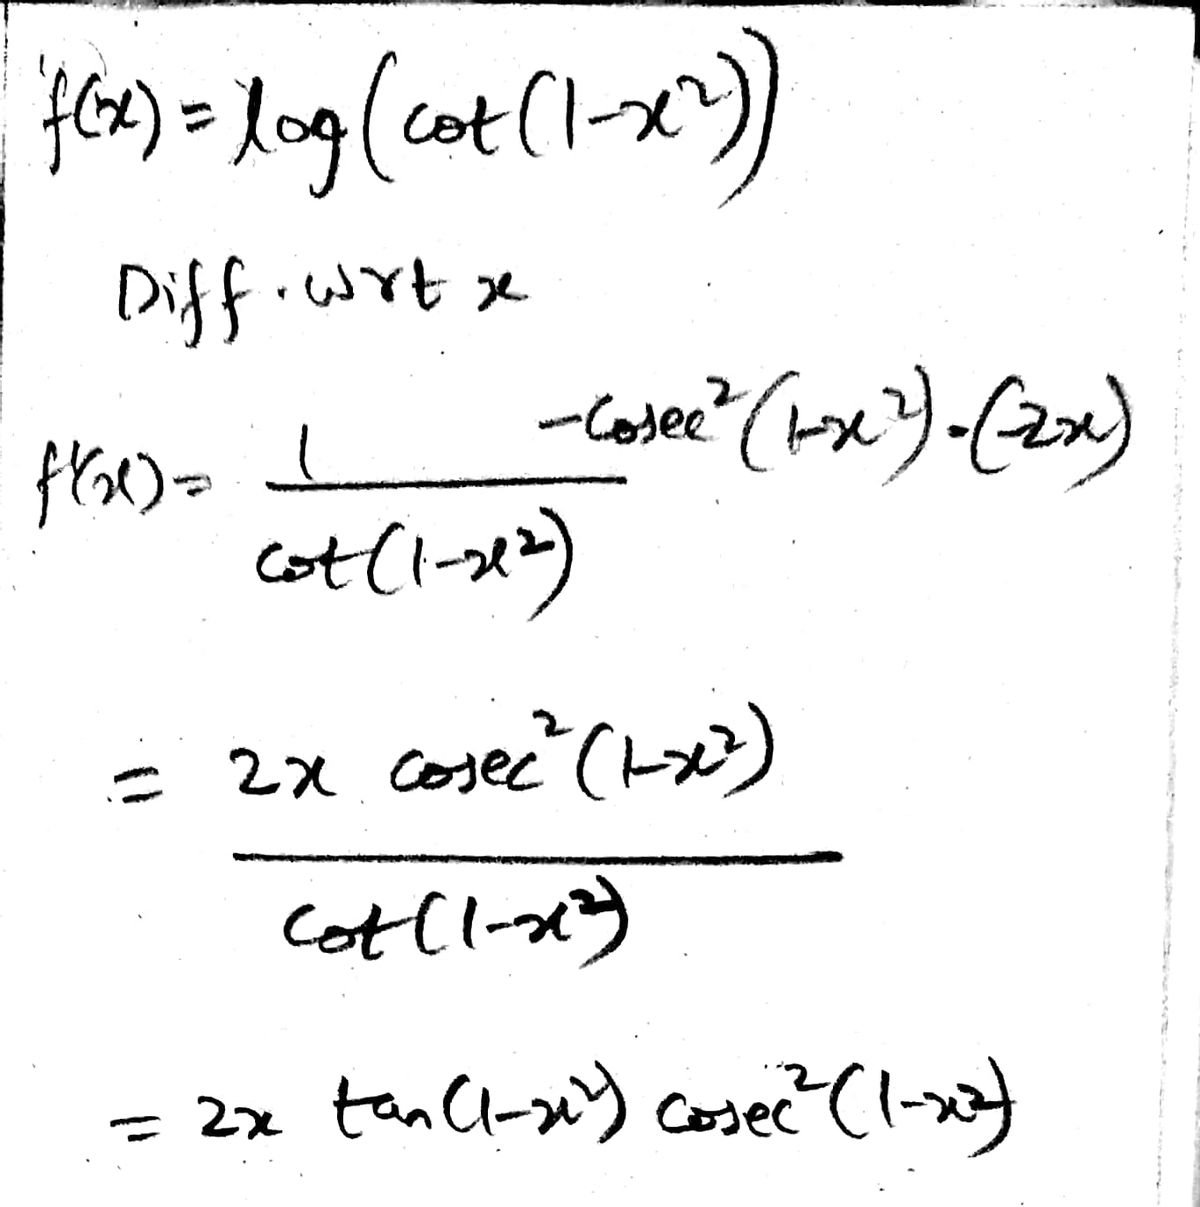 f(x) = log(cot(1-x²))
Diff. wrt x
f'(x) = 1/cot(1-x²) -cosec²(1-x²)·(-2x)
= 2x cosec²(1-x²)/cot(1-x²)
= 2x tan(1-x²) cosec²(1-x²)